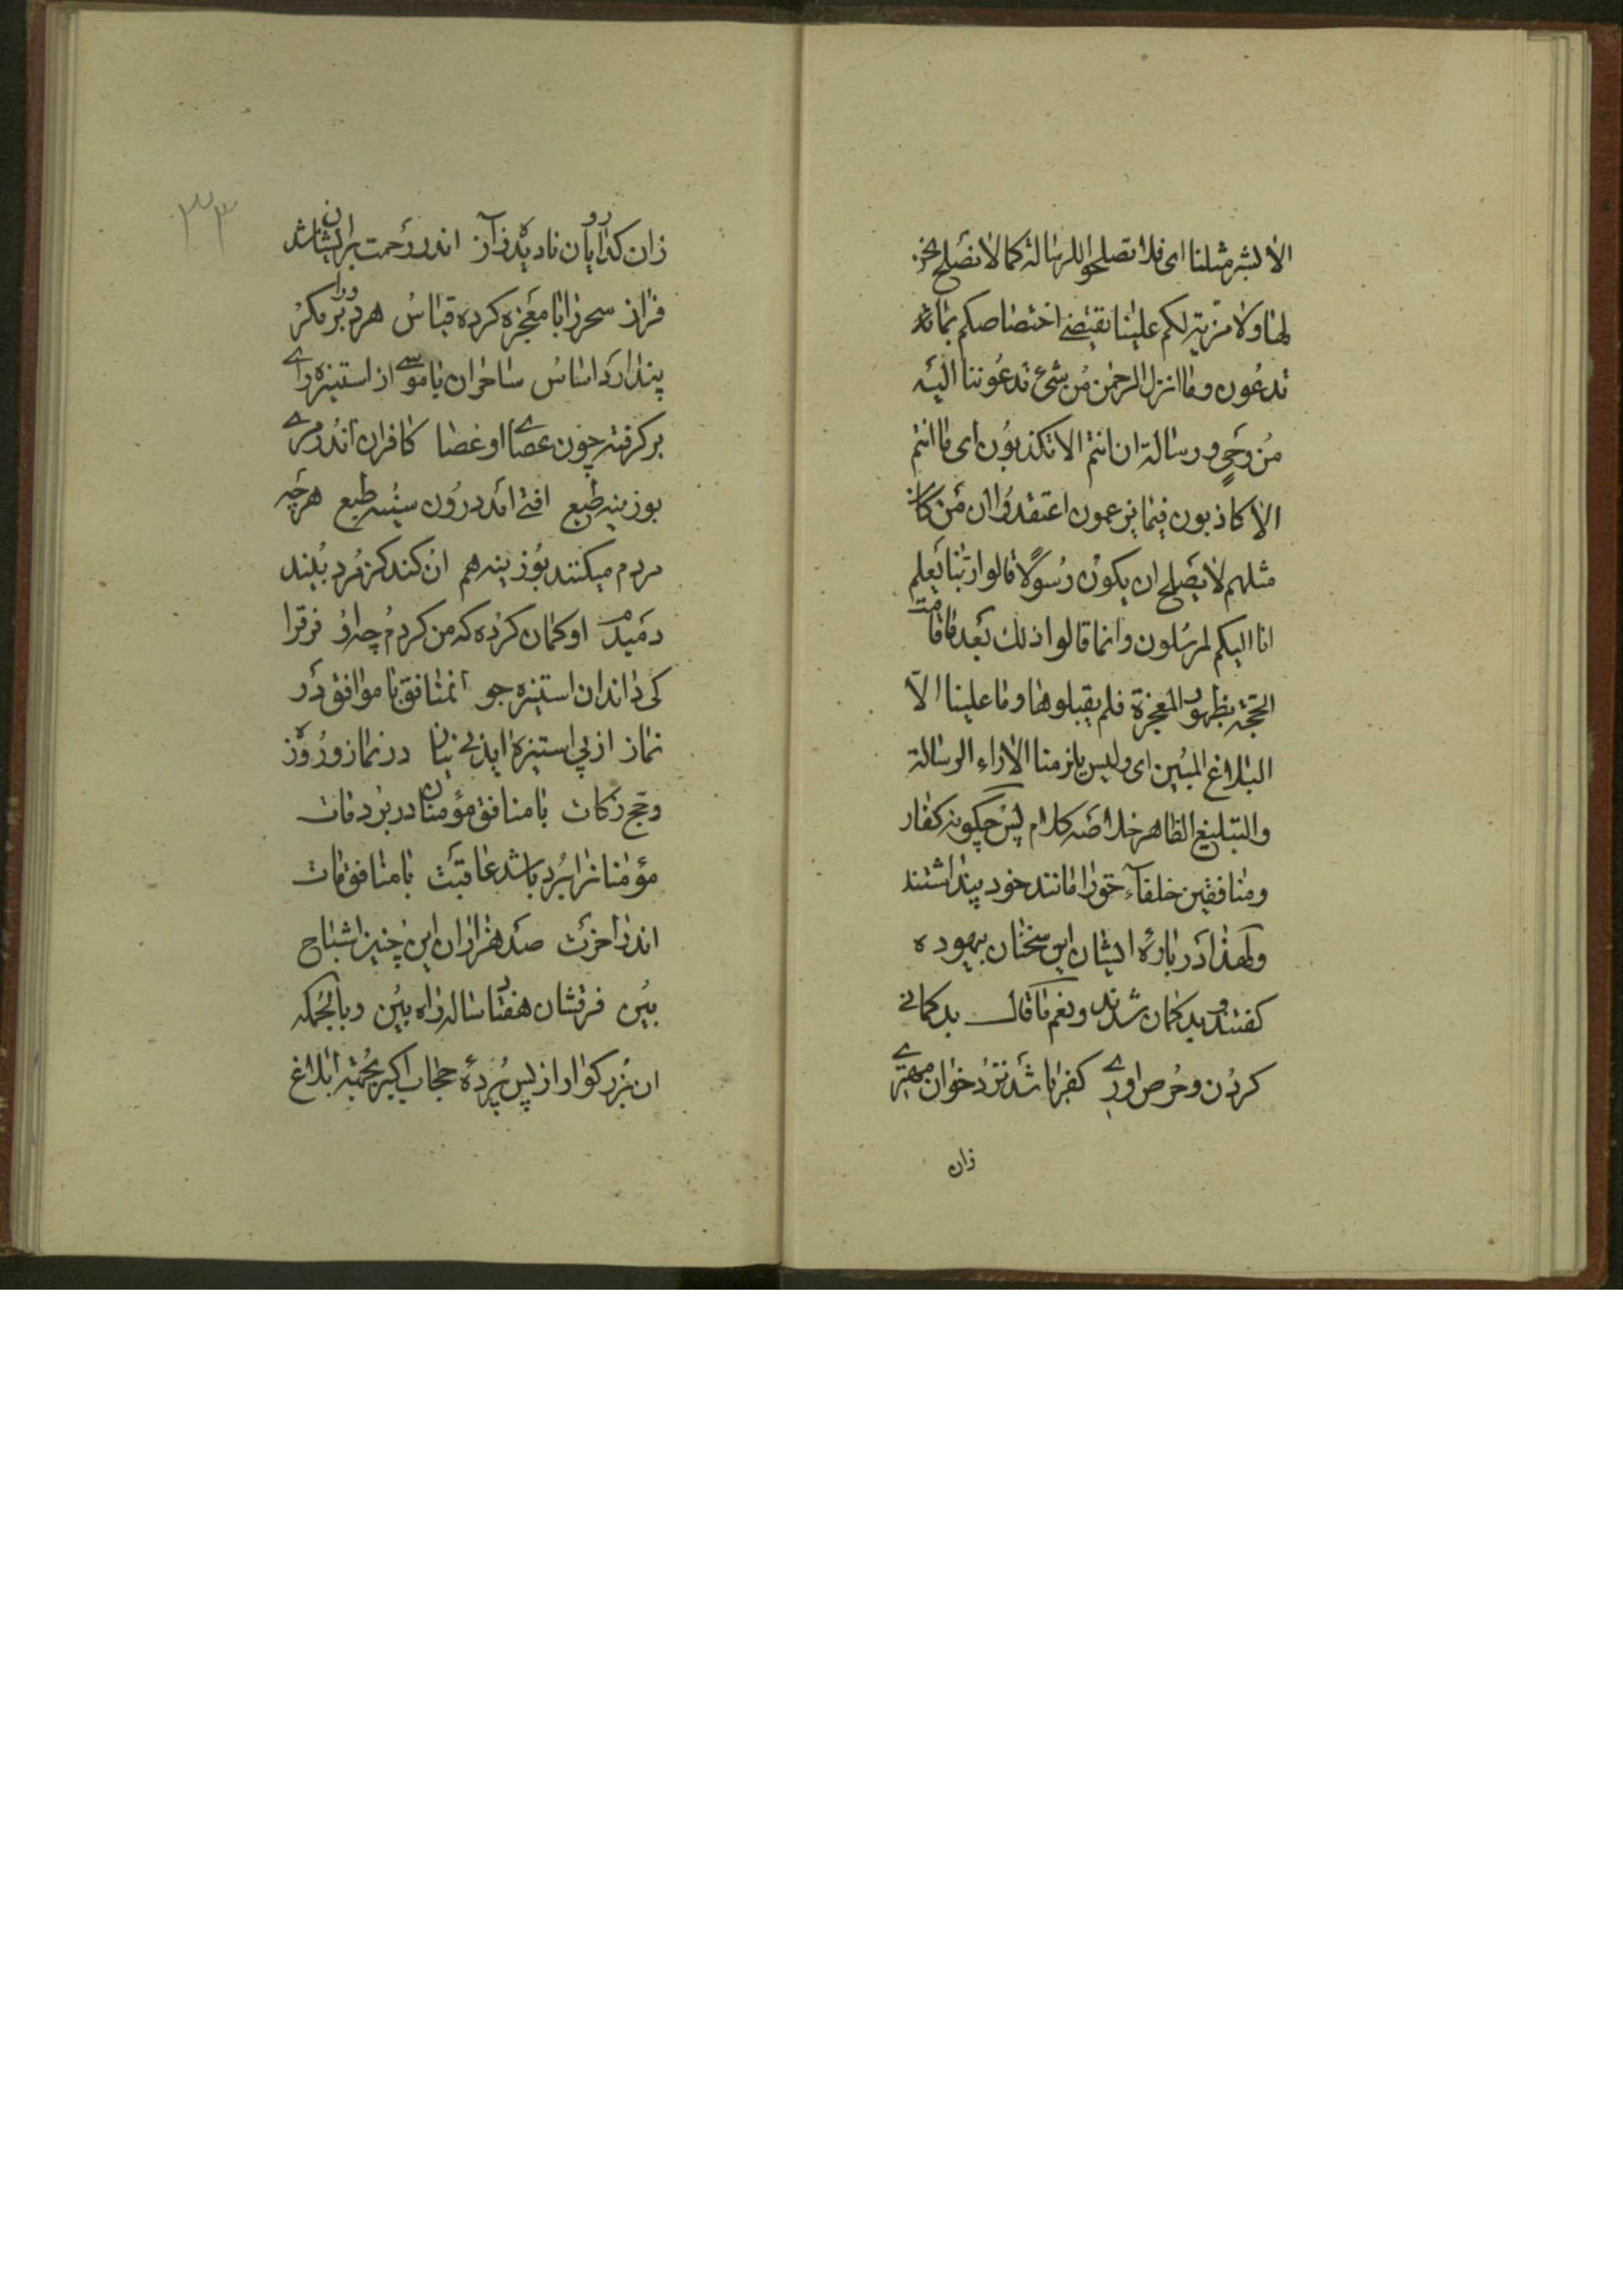 الا بشر مثلنا ای فلا تصلحوا للرسالة کما لا نصلح نحن
لها ولا مزیة لکم علینا یقتضی اختصاصکم بما
تدعون وما انزل الرحمن من شئ تدعوننا الیه
من وحی و رسالة ان انتم الا تکذبون ای ما انتم
الا کاذبون فیما یزعمون اعتقدوا ان من کان
مثلهم لا یصلح ان یکون رسولا قالوا ربنا یعلم
انا الیکم لمرسلون وانما قالوا ذلک بعد ما قامت
الحجة بظهور المعجزة فلم یقبلوها وما علینا الا
البلاغ المبین ای ولیس یلزمنا الا اداء الرسالة
والتبلیغ الظاهر خلاصه کلام پس چکونه کفار
ومنافقین خلفآء حق را مانند خود پنداشتند
ولهذا در بارهٔ ایشان این سخنان بیهوده
کفتند و بد کمان شدند و نعم ما قال بد کمانے
کردن و حرص اوری کفر باشد نزد خوان مهترے
زان
۳۳
زان کدا رویان نادیده ز آز اندر رحمت بر ایشان شد
فراز سحر را با معجزه کرده قیاس هر دو را بر مکر
پندارد اساس ساحران با موسے از استیزه راے
بر کرفته چون عصاے او عصا کافران اندر مرے
بوزینه طبع افتے امد درون سینه طبع هر چه
مردم میکنند بوزینه هم ان کند کز مرد بیند
دمبدم او کمان کرده که من کردم چه او فرق را
کی داند ان استیزه جو ان منافق با موافق در
نماز از پی استیزه اید نی نیاز در نماز و روزه
و حج زکات با منافق مؤمنان در برد و مات
مؤمنانرا برد باشد عاقبت با منافق مات
اندر اخرت صد هزاران این چنین اشباح
بین فرقشان هفتاد ساله راه بین و بالجمله
ان بزرکوار از پس پردهٔ حجاب اکبر بجهة ابلاغ